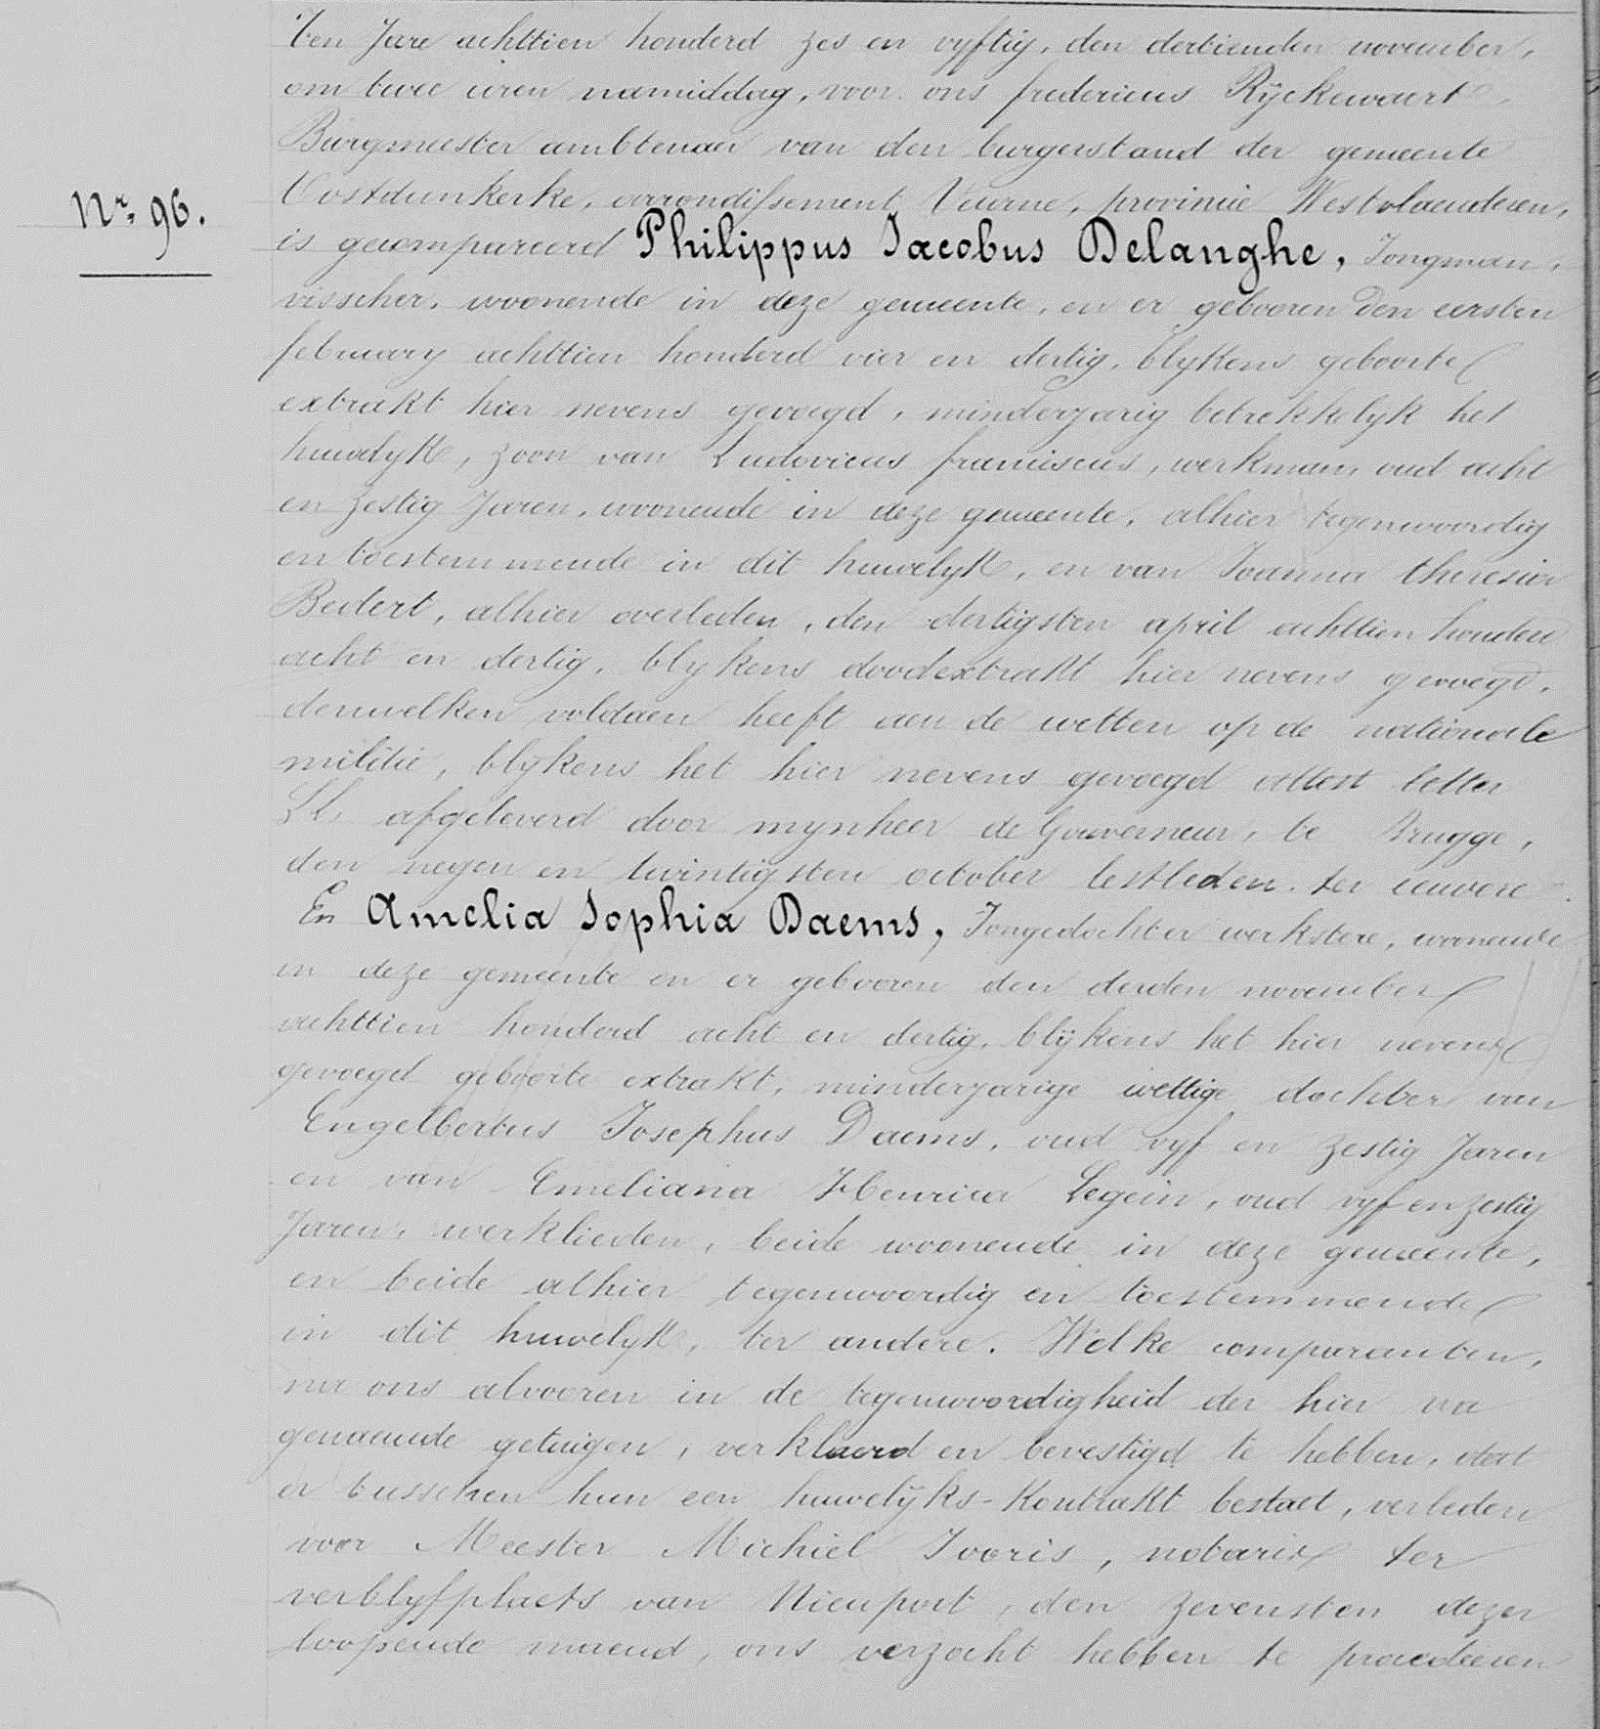 Ten Jare achttien honderd zes en vyftig, den dertienden november,
om twee uren namiddag, voor ons fredericus Ryckewaert
Burgmeester ambtenaer van den burgerstand der gemeente
Nr. 96.
Oostdunkerke, arrondissement Veurne, provincie Westvlaenderen,
is gecompareerd Philippus Jacobus Delanghe, Jongman,
visscher, woonende in deze gemeente, en er gebooren den eersten
february achttien honderd vier en dertig, blykens geboorte
extrakt hier nevens gevoegd, minderjarig betrekkelyk het
huwelyk, zoon van Ludovicus franciscus, werkman, oud acht
en zestig Jaren, woonende in deze gemeente, alhier tegenwoordig
en toestemmende in dit huwelyk, en van Joanna theresia
Bedert, alhier overleden, den dertigsten april achttien honderd
acht en dertig, blykens doodextrakt hier nevens gevoegd,
denwelken voldaen heeft aen de wetten op de nationale
militie, blykens het hier nevens gevoegd attest letter
LL, afgeleverd door mynheer de Gouverneur, te Brugge,
den negen en twintigsten october lestleden. ter eenere
En Amelia Sophia Daems, Jongedochter werkstere, woonende
in deze gemeente en er gebooren den derden november
achttien honderd acht en dertig, blijkens het hier nevens
gevoegd geboorte extrakt, minderjarige wettige dochter van
Engelbertus Josephus Daems, oud vyf en zestig Jaren
en van Emeliana Henrica Legein, oud vyf en zestig
Jaren, werklieden, beide woonende in deze gemeente,
en beide alhier tegenwoordig en toestemmende
in dit huwelyk, ter andere. Welke comparanten,
na ons alvooren in de tegenwoordigheid der hier na
genaemde getuigen, verklaerd en bevestigd te hebben, dat
er tusschen hun een huwelijks-Kontrakt bestaet, verleden
voor Meester Michiel Jvoris, notaris ter
verblyfplaets van Nieuport, den zevensten dezer
loopende maend, ons verzocht hebben te procedeeren